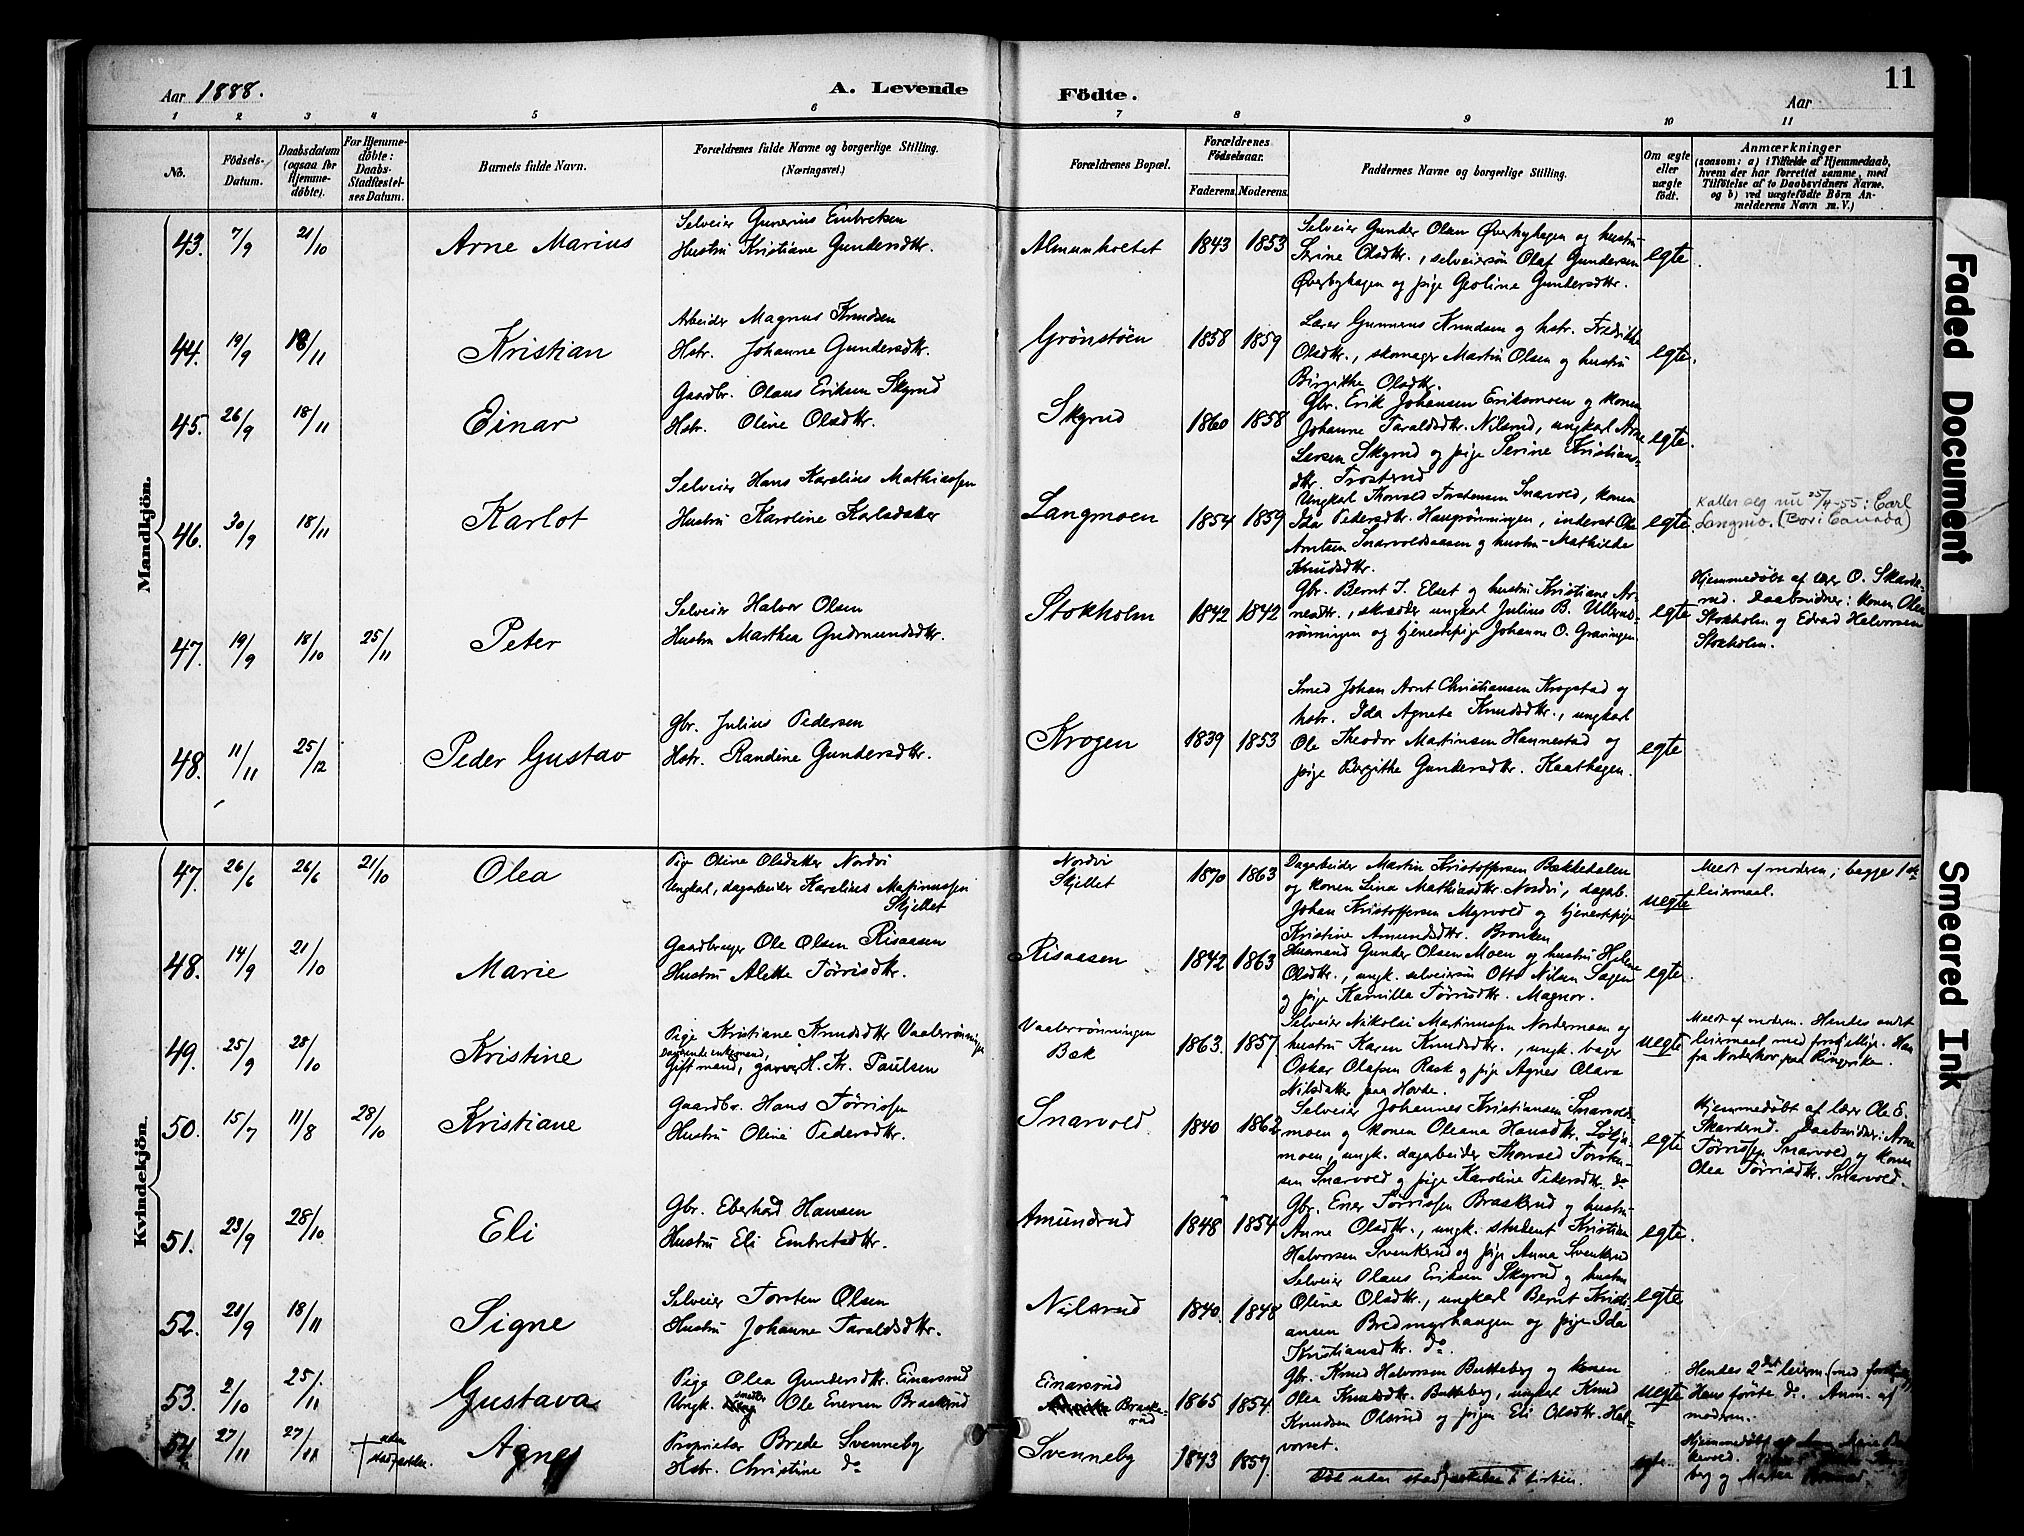 Aar 1888.
A. Levende
Födte.
Aar
11
1 2 3 4 5 6 7 8 9 10 11
No.
Födsels-
Datum.
Daabsdatum
(ogsaa for
Hjemme-
döbte).
For Hjemme-
döbte:
Daabs-
Stadfæstel-
ses Datum.
Barnets fulde Navn.
Forældrenes fulde Navne og borgerlige Stilling.
(Næringsvei.)
Forældrenes Bopæl.
Forældrenes
Födselsaar.
Faderens. Moderens.
Faddernes Navne og borgerlige Stilling.
Om ægte
eller
uægte
födt.
Anmærkninger
(saasom: a) i Tilfælde af Hjemmedaab,
hvem der har forrettet samme, med
Tilföielse af to Daabsvidners Navne.
og b) ved uægtefödte Börn An-
melderens Navn m. V.)
Mandkjön.
43. 7/9 21/10
Arne Marius
Selveier Gunerius Embretsen
Hustru Kristiane Gundersdtr.
Almenholtet
1843 1853
Selveier Gunder Olsen Øverbyhagen og hustru
Serine Olsdtr., selveiersøn Olaf Gundersen
Øverbyhagen og pige Geoline Gundersdtr.
egte.
44. 19/9 18/11
Kristian
Arbeider Magnus Knudsen
Hstr. Johanne Gundersdtr.
Grønstøen
1858 1859
Lærer Gunnerus Knudsen og hstr. Fredrikke
Olsdtr., skomager Martin Olsen og hustru
Birgithe Olsdtr.
egte.
45. 26/9 18/11
Einar
Gaardbr. Olaus Eriksen Skyrud
Hstr. Oline Olsdtr.
Skyrud
1860 1858
Gbr. Erik Johansen Eriksmoen og konen
Johanne Taraldsdtr. Nilsrud, ungkarl Arne
Larsen Skyrud og pige Serine Kristians-
dtr. Trosterud
egte.
46. 30/9 18/11
Karlot
Selveier Hans Karelius Mathiassen
Hustru Karoline Karlsdatter
Langmoen
1854 1859
Ungkarl Thorvald Torstensen Snarvold, konen
Ida Pedersdtr. Haugrønningen, inderst Ole
Arntsen Snarvoldsaasen og hustru Mathilde
Knudsdtr.
egte.
Kaller seg nu 25/4-55: Carl
Langmo. (Bor i Canada)
47. 19/9 18/10 25/11
Peter
Selveier Halvor Olsen
Hustru Marthea Gudmundsdtr.
Stokholm
1842 1842
Gbr. Bernt J. Elset og hustru Kristiane Ar-
nesdtr., skrædder ungkarl Julius B. Ullerud-
rønningen og tjenestepige Johanne O. Gravingen
egte
Hjemmedøbt af lærer O. Skarde-
rud. Daabsvidner: konen Olea
Stokholm og Edvard Halvorsen
Stokholm.
48. 11/11 25/12
Peder Gustav
Gbr. Julius Pedersen
Hstr. Randine Gundersdtr.
Krogen
1839 1853
Smed Johan Arnt Christiansen Krogstad og
hstr. Ida Agnete Knudsdtr., ungkarl
Ole Theodor Martinsen Hannestad og
pige Birgithe Gundersdtr. Kaathagen.
egte
Kvindekjön.
47. 26/6 26/6 21/10
Olea
Pige Oline Olsdatter Nordvi
Ungkarl, dagarbeider Karelius Masinussen
Skjellet
Nordvi
Skjellet
1870 1863
Dagarbeider Martin Kristoffersen Bækkedalen
og konen Lina Mathiasdtr. Nordvi, dagarb.
Johan Kristoffersen Myrvold og tjenestepige
Kristine Amundsdtr. Bronken
uegte
Meldt af moderen; begges 1ste
leiermaal.
48. 14/9 21/10
Marie
Gaardbruger Ole Olsen Risaasen
Hustru Alette Tørrisdtr.
Risaasen
1842 1863
Husmand Gunder Olsen Moen og hustru Helene
Olsdtr., ungk. selveiersøn Otto Nilsen Sagen
og pige Kamilla Tørrisdtr. Magnor.
egte.
49. 25/9 28/10
Kristine
Pige Kristiane Knudsdtr Vaalerrønningen
Gift mand, garver H. Kr. Paulsen
Vaalerrønningen
Bæk
1863. 1857.
Selveier Nikolai Martinussen Nordermoen og
hustru Karen Knudsdtr., ungk. bager
Oskar Olafsen Rask og pige Agnes Olava
Nilsdatter paa Hovde.
uegte
Meldt af moderen. Hendes andet
leiermaal med forskjellige. Han
fra Norderhov paa Ringerike.
50. 15/7 11/8 28/10
Kristiane
Gaardbr. Hans Tørrissen
Hustru Oline Pedersdtr.
Snarvold.
1840 1862
Selveier Johannes Kristiansen Snarvold-
moen og konen Oleana Hansdtr. Løljn-
moen, ungk. dagarbeider Thorvald Torsten-
sen Snarvold og pige Karoline Pedersdtr. do
egte
Hjemmedøbt af lærer Ole E.
Skarderud. Daabsvidner: Arne
Tørrissen Snarvold og konen
Olea Tørrisdtr. Snarvold.
51. 23/9 28/10
Eli
Gbr. Eberhard Hansen
Hustru Eli Embretsdtr.
Amundrud
1848 1854
Gbr. Ener Tørrissen Braskerud og hustru
Anne Olsdtr., ungk. student Kristian
Halvorsen Svenkerud og pige Anna Svenkerud
egte.
52. 21/9 18/11
Signe
Selveier Torsten Olsen
Hustru Johanne Taraldsdtr.
Nilsrud
1840. 1848
Selveier Olaus Eriksen Skyrud og hustru
Oline Olsdtr., ungkarl Bernt Kristi-
ansen Bredmyrhaugen og pige Ida
Kristiansdtr. do.
egte
53. 2/10 25/11
Gustava
Pige Olea Gundersdtr. Einarsrud
Ungk. Ole Enersen Braskerud
Einarsrud
Braske-
rud
1865 1854.
Gbr. Knud Halvorsen Butteberg og konen
Olea Knudsdtr. Butteberg, ungkarl Knud
Knudsen Olsrud og pigen Eli Olsdtr. Hal-
vorset.
uegte
Hendes 2det leierm. (med forskjellige)
Hans første do. Anm. af
moderen.
54. 27/11 27/11
† uden
stadfæstelse
Agnes
Proprietær Brede Svenneby
Hstr. Christine do
Svenneby
1843 1859.
Død uden stadfæstelse i kirken.
egte.
Hjemmedøbt af
berg og Mathea
Faded Document
Smeared Ink